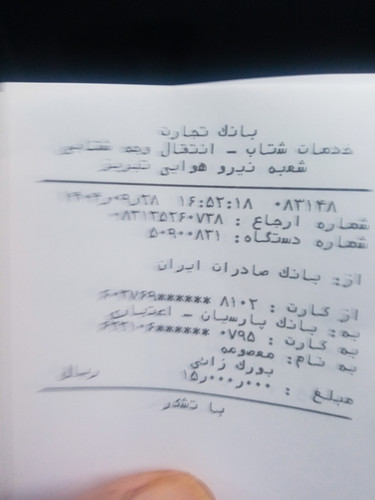 بانک تجارت
خدمات شتاب - انتقال وجه
شعبه نیرو هوایی تبریز
۰۸۳۱۴۸ ۱۶:۵۲:۱۸
شماره ارجاع : ۰۸۳۱۳۵۲۶۰۷۳۸
شماره دستگاه : ۵۰۹۰۰۸۳۱
از: بانک صادرات ایران
از کارت : ۸۱۰۲ ******۶۰۳۷۶۹
به: بانک پارسیان - اعتباری
به کارت : ۰۷۹۵ ******۶۲۲۱۰۶
به نام: معصومه
بورک زائی
مبلغ : ۱۵٫۰۰۰٫۰۰۰ ریال
با تشکر